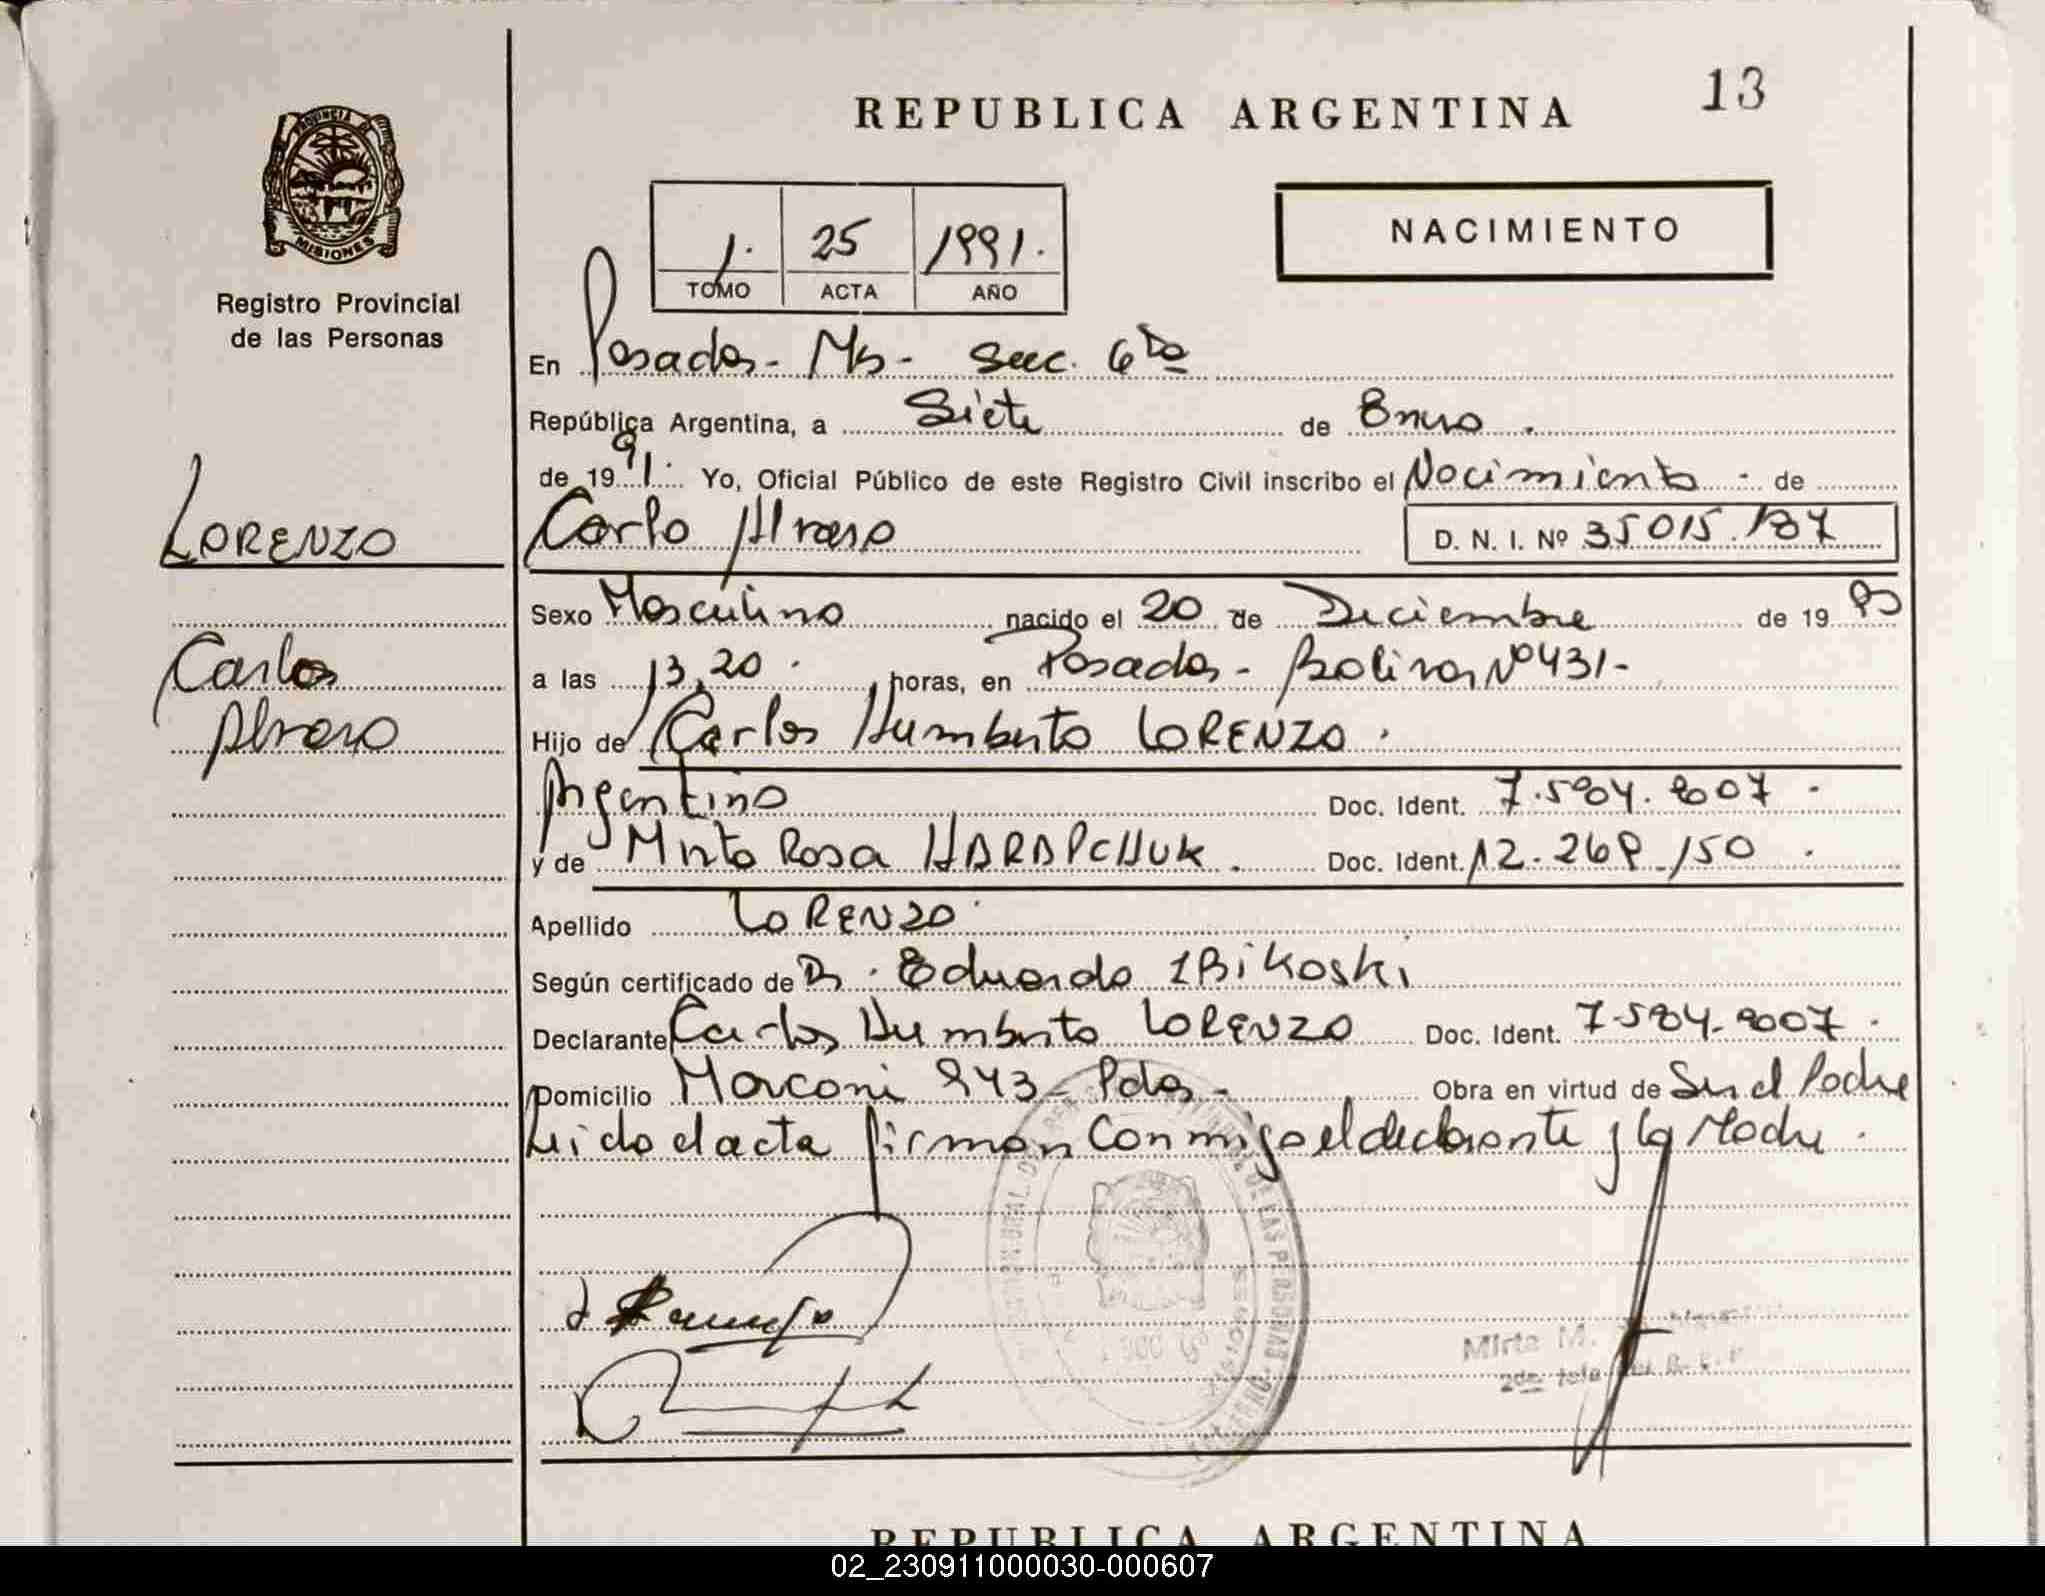 13
REPUBLICA ARGENTINA
PROVINCIA DE
MISIONES
NACIMIENTO
1. 25 1991.
TOMO ACTA AÑO
Registro Provincial
de las Personas
En Posadas - Ms - Secc. 6ta
República Argentina, a Siete de Enero.
de 1991. Yo, Oficial Público de este Registro Civil inscribo el Nacimiento - de
LORENZO
Carlo Alvaro D. N. I. Nº 35.015.187
Sexo Masculino nacido el 20 de Diciembre de 19 90
Carlos
a las 13,20. horas, en Posadas - Bolivar Nº 431-
Alvaro
Hijo de Carlos Humberto LORENZO.
Argentino Doc. Ident.
y de Mirta Rosa HARAPCHUK. Doc. Ident. 12.268.150.
Apellido LORENZO.
Según certificado de Dr. Eduardo ZBikoski
Declarante Carlos Humberto LORENZO Doc. Ident.
Domicilio Marconi 943 - Pdas - Obra en virtud de Ser el Padre
Leida el acta firman Conmigo el declarante y la Madre.
Mirta M.
REPUBLICA ARGENTINA
02_230911000030-000607